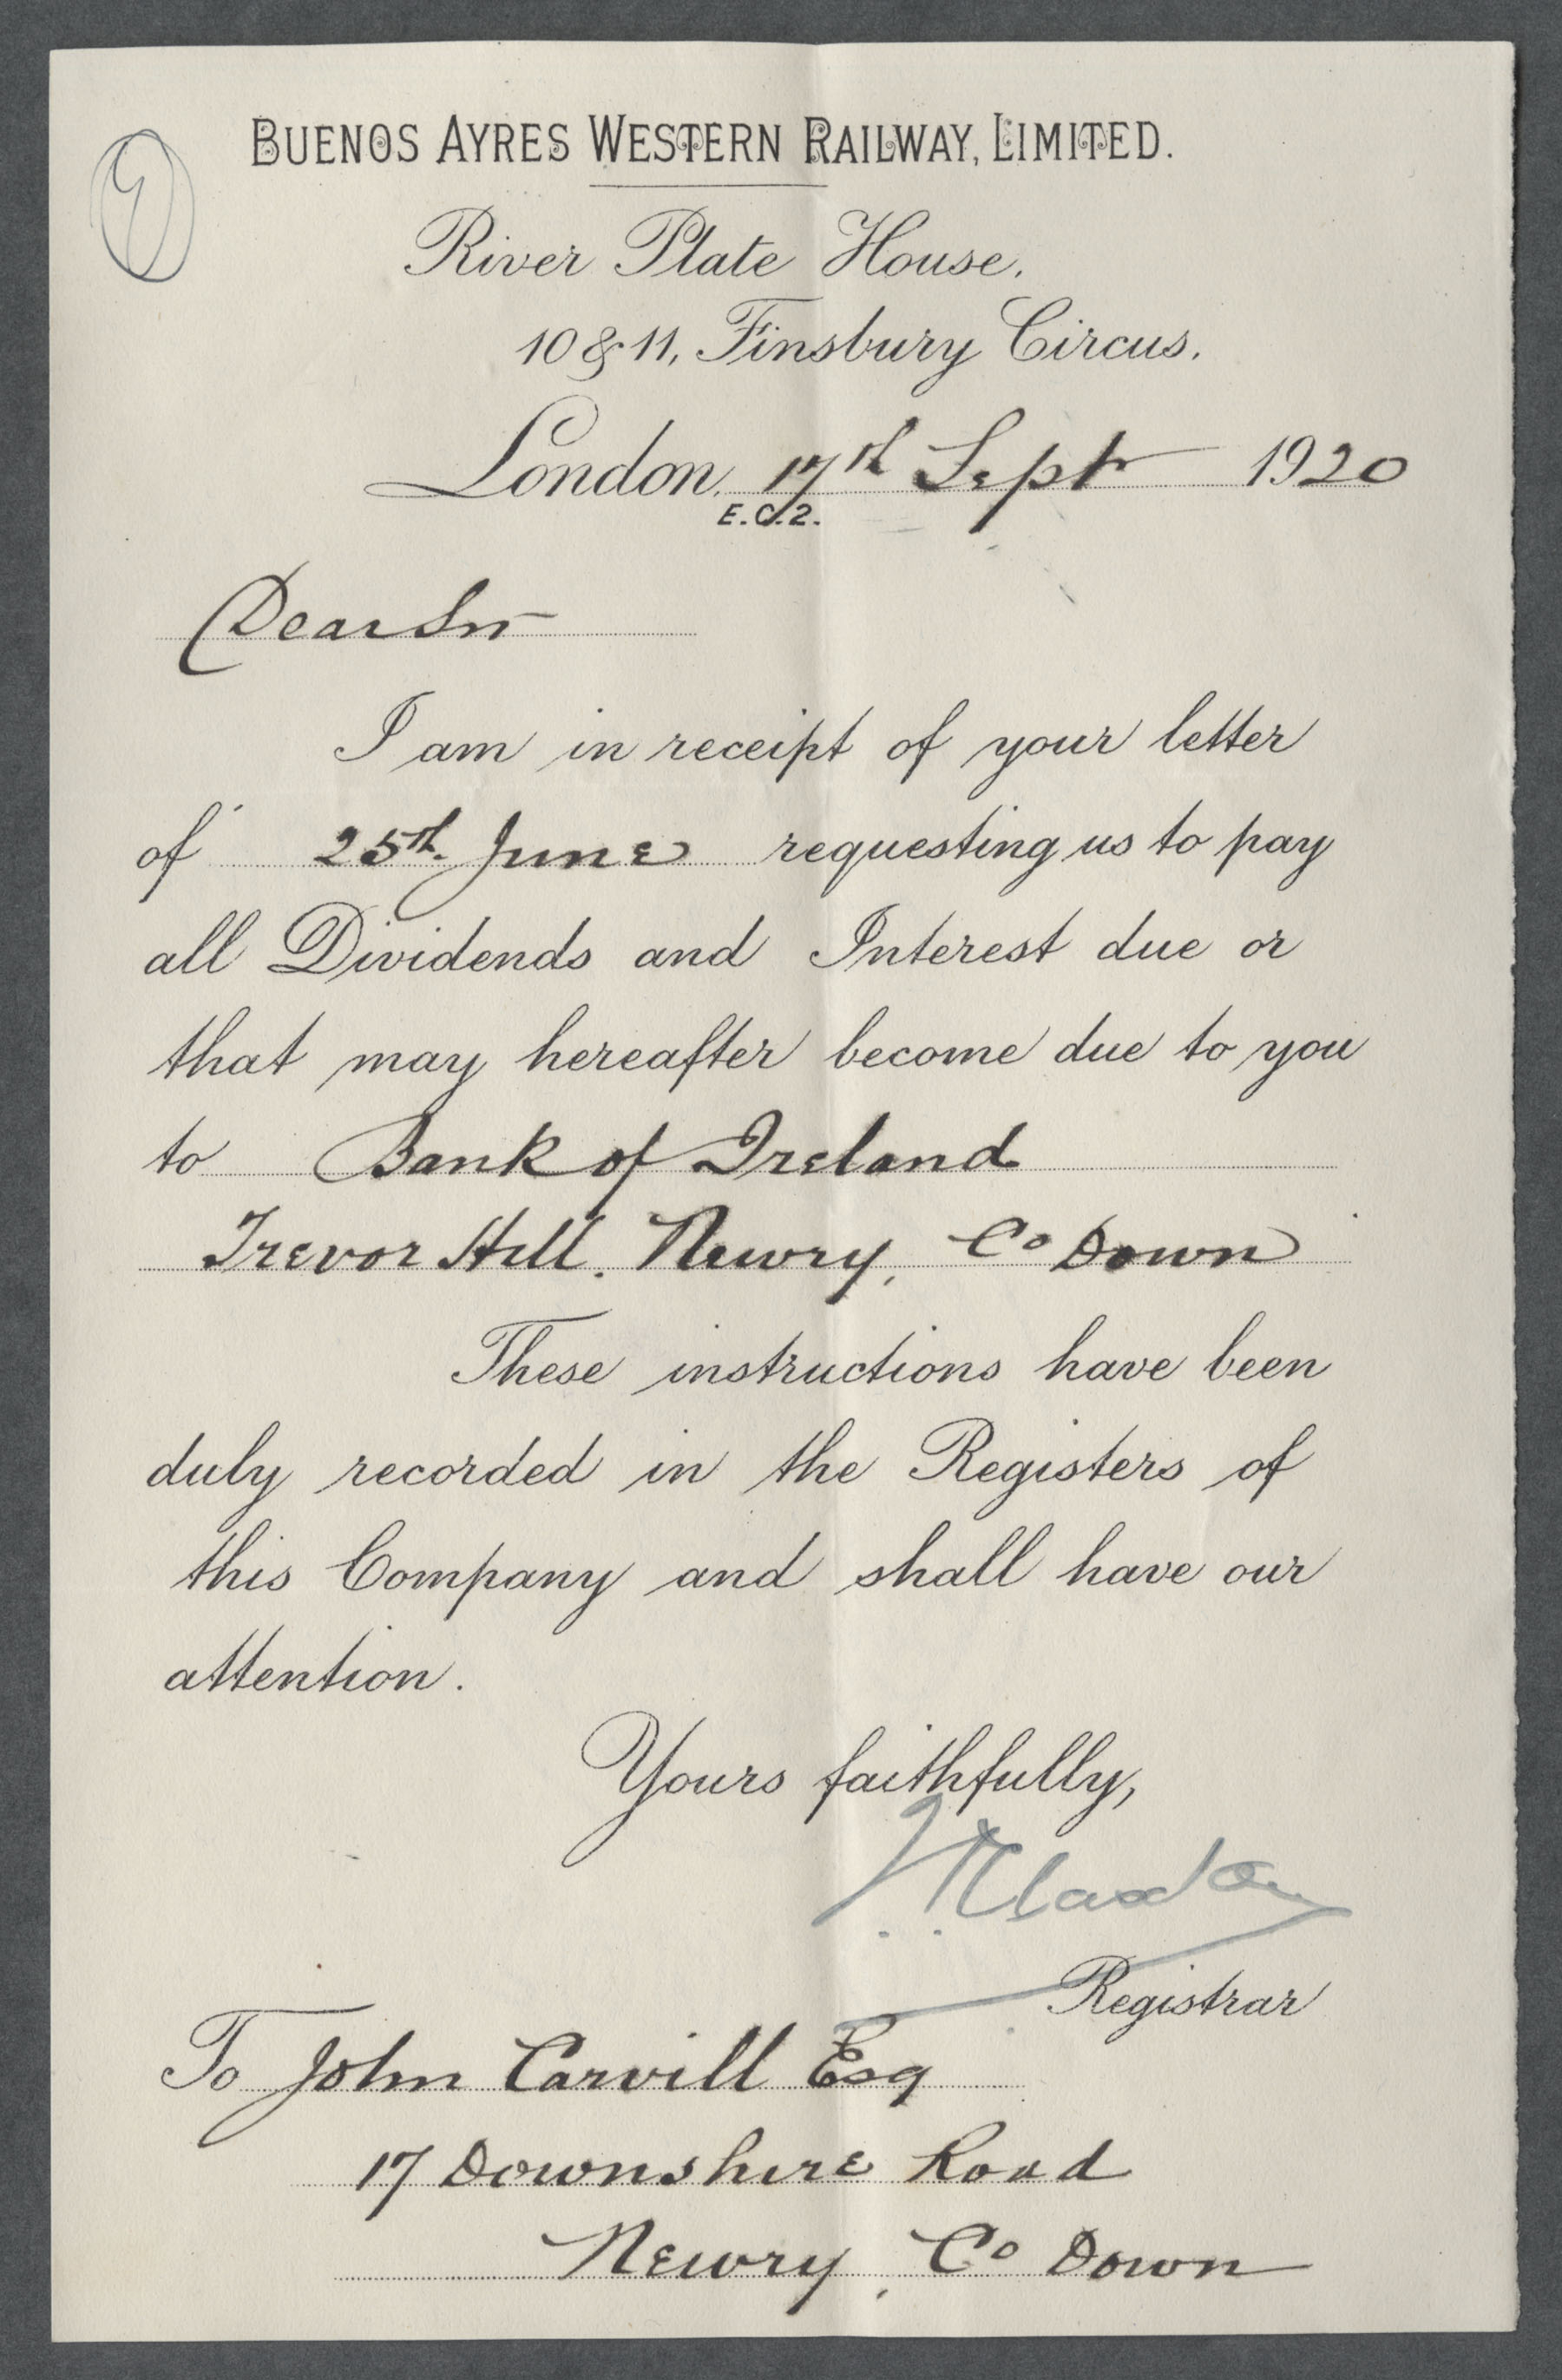 BUENOS AYRES WESTERN RAILWAY, LIMITED.
River Plate House,
10 & 11, Finsbury Circus,
London, 17th Sept 1920
E.C.2.
Dear Sir
I am in receipt of your letter
of 25th June requesting us to pay
all Dividends and Interest due or
that may hereafter become due to you
to Bank of Ireland
Trevor Hill. Newry, Co Down
These instructions have been
duly recorded in the Registers of
this Company and shall have our
attention.
Yours faithfully,
Registrar
To John Carvill Esq
17 Downshire Road
Newry, Co Down